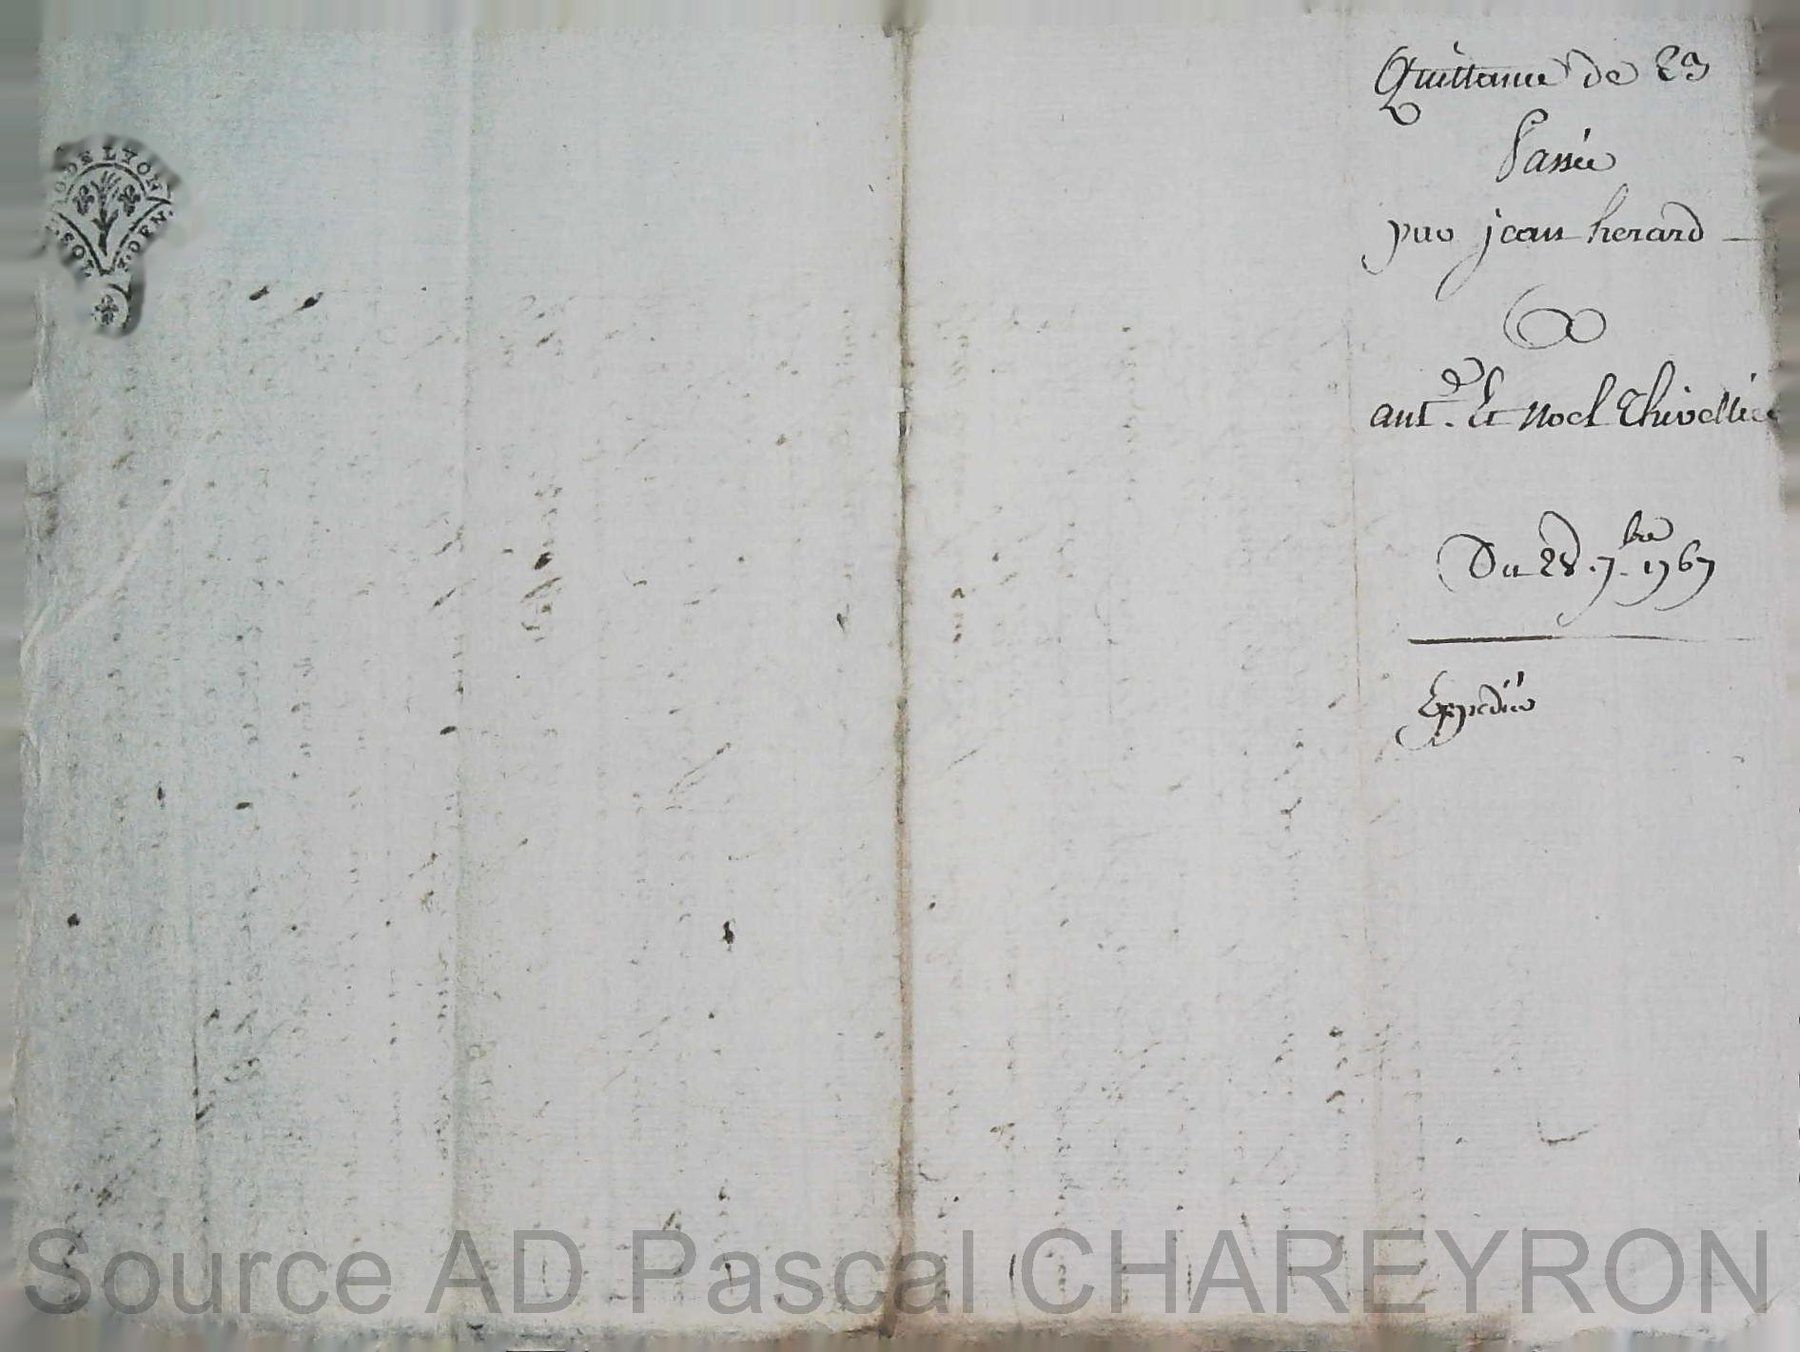 DE LYON
SOL
DEN
Quittance de 29
Passée
par jean herard
A
ant. Et Noel Thivellie
Du 28 7bre 1767
Expediée
Source AD Pascal CHAREYRON